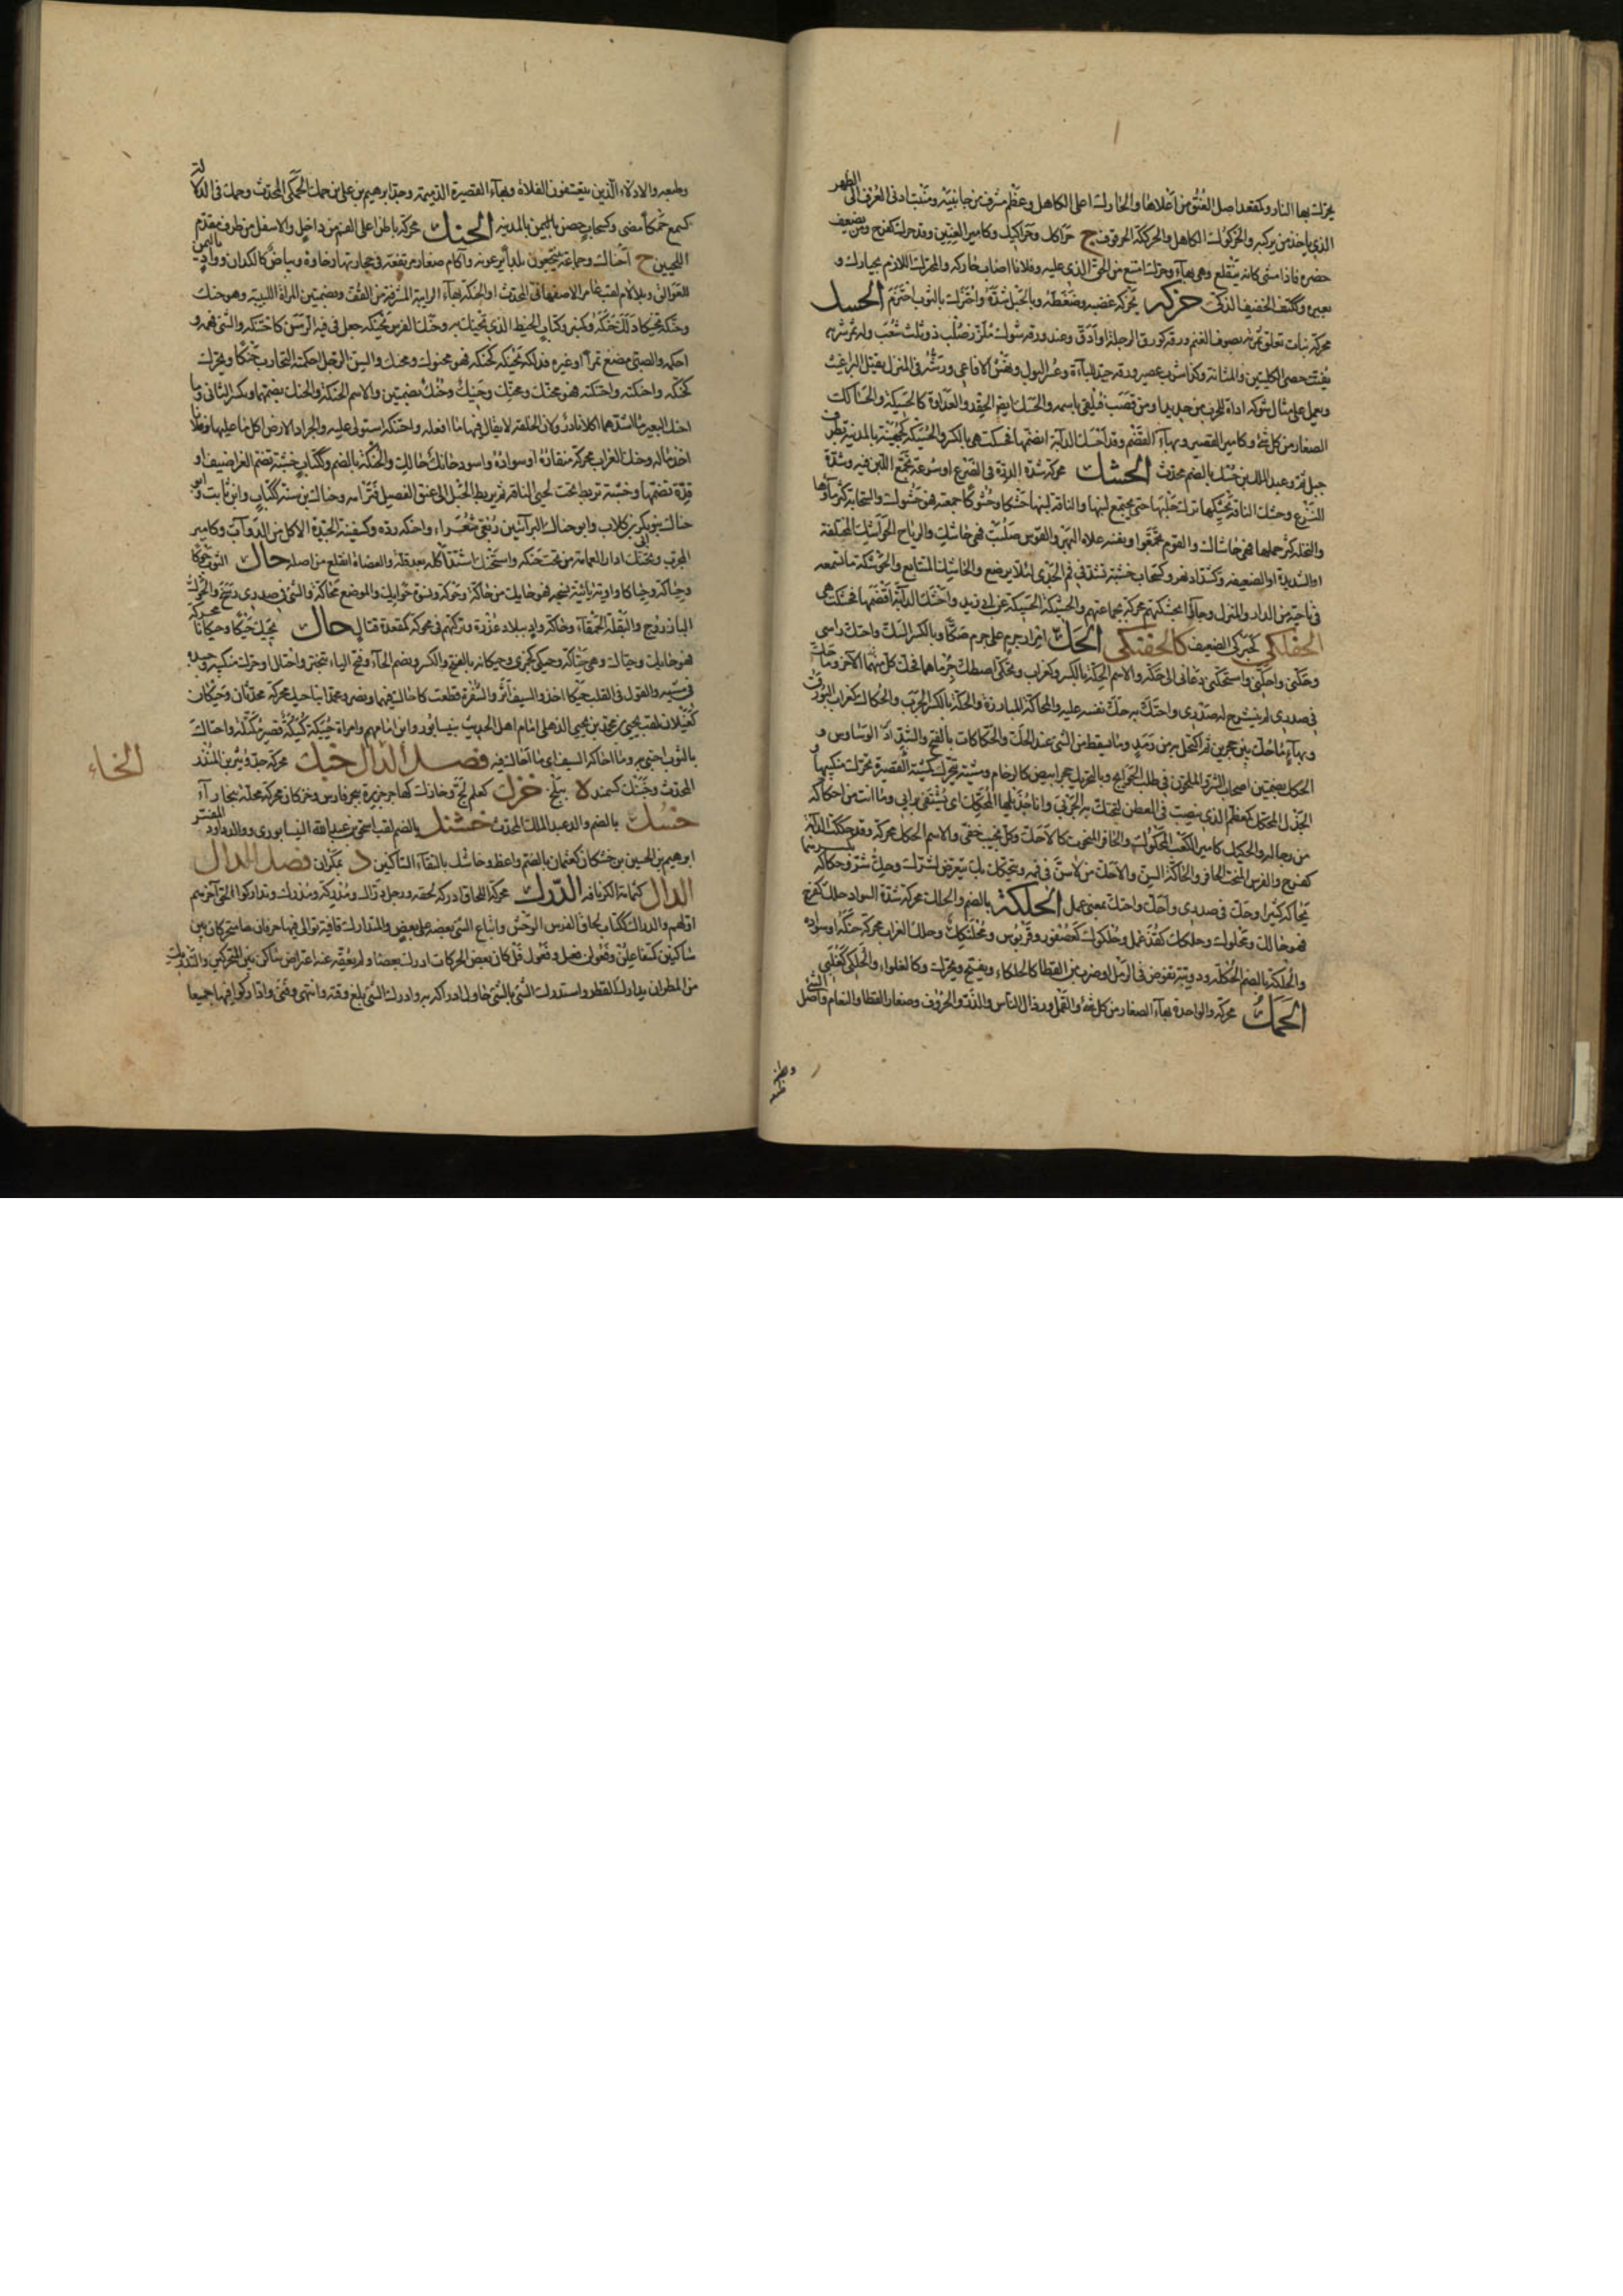 يحرك بها النار وكمقعد اصل العنق من اعلاها والحارك اعلى الكاهل وعظم مشرف من جانبيه ومنبت ادنى العرف الى الظهر
الذي ياخذ من يركبه والحركوك الكاهل والحركة الحرقوف ج حراكك وحراكيك وكامير العنين وقد حرك كفرح ومن يضعف
حصره فاذا مشى كانه ينقلع وهي بهاء وحرك امتنع من الحق الذي عليه وفلانا اصاب حاركه والمحرك اللازم بحارك و
بعيره وككتف الخفيف الذكي حزكه يحزكه عصبه وضغطه وبالحبل شده واحتزك بالثوب احتزم الحسك
محركة نبات تعلق ثمرته بصوف الغنم ورقه كورق الرجلة او ادق وعند ورقه شوك ملزز صلب ذو ثلث شعب وله ثمر شربه
يفتت حصى الكليتين والمثانة وكذا شرب عصير ورقه جيد للباءة وعسر البول ونهش الافاعي ورشه في المنزل يقتل البراغيث
ويعمل على مثال شوكه اداة للحرب من حديد او من قصب فيلقى باسمه والحسك ايضا الحقد والعداوة كالحسيكة والحساكك
الصغار من كل شئ وكامير القصير وبهاء القنفذ وقد احسك الدابة اقضمها فحسكت هي بالكسر والحسيكة كجهينة بالمدينة بطرف
جبل ثم وعبد الملك بن حسك بالضم محدث الحشك محركة شدة الدرة في الضرع او سرعة تجمع اللبن فيه وشدة
النزع وحشك الناقة يحشكها ترك حلبها حتى يجتمع لبنها والناقة لبنها حشكا وحشوكا جمعته فهي حشوك والسحابة كثر ماؤها
والنخلة كثر حملها فهي حاشك والقوم تجمعوا ونفسه علاه البهر والقوس صلبت فهي حاشك والرياح الحواشك المختلفة
او الشديدة او الضعيفة وكشداد نهر وككتاب خشبة تشد في فم الجدي لئلا يرضع والحاشك المتتابع والحشكة ما تسمعه
في ناحية من الدار والمنزل وجاؤا بحشكتهم محركة بجماعتهم والحشيكة الحسيكة عن ابي زيد واحشك الدابة اقضمها فحشكت هي
الحفلكي كحبركى الضعيف كالحفنكي الحك امرار جرم على جرم صكا وبالكسر الشك واحتك راسي
وحكني واحكني واستحكني دعاني الى حكه والاسم الحكة بالكسر وكغراب وتحاكا اصطك جرماهما فحك كل منهما الآخر وما حك
في صدري لم ينشرح له صدري واحتك به حك نفسه عليه والمحاكة المباراة والحكة بالكسر الجرب والحكاك كغراب البورق
وبهاء ما حك بين حجرين ثم اكتحل به من رمد وما سقط من الشئ عند الحك والحكاكات بالفتح والشد الوساوس و
الحكك بضمتين اصحاب الشر والملحون في طلب الحوائج وبالتحريك حجر ابيض كالرخام ومشية بتحرك كمشية القصيرة تحرك منكبيها و
الجذل المحكك كمعظم الذي ينصب في العطن لتحتك به الجربى وانا جذيلها المحكك اي يستشفى برايي وما انت من احكاكه
من رجاله والحكيك كامير الكعب المحكوك والحافر النحيت كالاحك وكل نحيت خفي والاسم الحكك محركة وقد حككت الدابة
كفرح والفرس المنحت الحافر والحاكة السن والاحك من لا سن في فيه ويتحكك بك يتعرض لشرك وحك شر وحكاكه
يحاكه كثيرا وحك في صدري واحك واحتك بمعنى عمل الحلكة بالضم والحلك محركة شدة السواد حلك كفرح
فهو حالك ومحلولك وحلكوك كقذعمل وحلكوك كعصفور وقربوس ومحلنكك وحلك الغراب محركة حنكه او سواده
والحلكة بالضم الحكلة ودويبة تغوص في الرمل او ضرب من العظا كالحلكاء ويفتح ويحرك وكالغلواء والحلكى كغلبى
الحمك محركة والواحدة بهاء الصغار من كل شئ والقمل ورذال الناس والذر والخروف وصغار القطا والنعام واصل الشئ
وطبعه
وطبعه والادلاء الذين يتعسفون الفلاة وبهاء القصيرة الدميمة وجد ابرهيم بن علي بن حمك الحمكي المحدث وحمك في الدلالة
كسمع حمكا مضى وكسحاب حصن باليمن بالمدينة الحنك محركة باطن اعلى الفم من داخل والاسفل من طرف مقدم
اللحيين ج احناك وجماعة ينتجعون بلدا يرعونه وآكام صغار مرتفعة في حجارتها رخاوة وبياض كالكدان وواد باليمن
للعوالق وبلا لام لقب عامر الاصفهاني المحدث او الحنكة بهاء الرابية المشرفة من القف وبضمتين المراة اللبيبة وهو حنك
وحنكه تحنيكا دلك حنكه وكمنبر وكتاب الخيط الذي يحنك به وحنك الفرس يحنكه جعل في فيه الرسن كاحتنكه والشئ فهمه و
احكمه والصبي مضغ تمرا او غيره فدلكه بحنكه كحنكه فهو محنوك ومحنك والسن الرجل احكمته التجارب حنكا ويحرك
كحنكه واحنكته واحتنكته فهو محنك ومحتنك وحنيك وحنك بضمتين والاسم الحنكة والحنك بضمهما وبكسر الثاني وما
احنك البعيرين اشدهما اكلا نادر لان الخلقة لا يقال فيها ما افعله واحتنكه استولى عليه والجراد الارض اكل ما عليها وفلانا
اخذ ماله وحنك الغراب محركة منقاره او سواده واسود حانك حالك والحنكة بالضم وككتاب خشبة تضم الغراضيف او
قدة تضمها وخشبة تربط تحت لحيي الناقة ثم يربط الحبل الى عنق الفصيل فترامه وحناك بن سنة ككتاب وابن ثابت وابو
حناك بنو بكر بن كلاب وابو حناك البراء بن ربعي شعراء واحنكه رده وكسفينة الجيدة الاكل من الدواب وكامير
المجرب وتحنك ادار العمامة من تحت حنكه واستحنك اشتد اكله بعد قلة والعضاه انقلع من اصله حاك الثوب حوكا
وحياكة وحياكا واوية يائية نسجه فهو حايك من حاكة وحوكة ونسوة حوايك والموضع محاكة والشئ في صدري رسخ والحوك
الباذروج والبقلة الحمقاء وحاكة واد ببلاد عذرة وتركتهم في محوكة كمقعدة قتال حاك يحيك حيكا وحيكانا محركة
فهو حايك وحياك وهي حياكة وحيكى كجمزى وحيكانة بالفتح والكسر وبضم الحاء وفتح الياء تبختر واختال او حرك منكبيه وجسده
في مشيه والقول في القلب حيكا اخذ والسيف اثر والشفرة قطعت كاحاك فيهما ونصر وعمد ابنا حيك محركة محدثان وحيكان
كغيلان لقب يحيى بن محمد بن يحيى الذهلي امام اهل الحديث بنيسابور وابن امامهم وامراة حييكة كييكة قصيرة مكتلة واحتاك
بالثوب احتبى به وما احاكه السيف اي ما احاك فيه فصل الخاء خبك محركة جد وبير بن المنذر
المحدث وخبنك كسمند ة ببلخ خزك كعلم لج وخارك كهاجر جزيرة ببحر فارس وخزكان محركة محلة ببخاراء
خسك بالضم والد عبد الملك المحدث خشك بالضم لقب اسحق بن عبد الله النيسابوري ووالد داود المفسر
ابرهيم بن الحسين بن خشكان كعثمان بالضم واعظ وخاشك بالتقاء الساكنين د بمكران فصل الدال
الدال كثمامة الكرنافة الدرك محركة اللحاق ادركه لحقه ورجل دراك ومدركة ومدرك وتداركوا لحق آخرهم
اولهم والدراك ككتاب لحاق الفرس الوحش واتباع الشئ بعضه على بعض والمتدارك قافية توالى فيها حرفان متحركان بين
ساكنين كمتفاعلن وفعولن فعل وفعول فل كان بعض الحركات ادرك بعضا ولم يعقه عنه اعتراض ساكن بين المتحركين والتدريك
من المطر ان يدارك القطر واستدرك الشئ بالشئ حاول ادراكه به وادرك الشئ بلغ وقته وانتهى وفني واداركوا فيها جميعا
الخاء